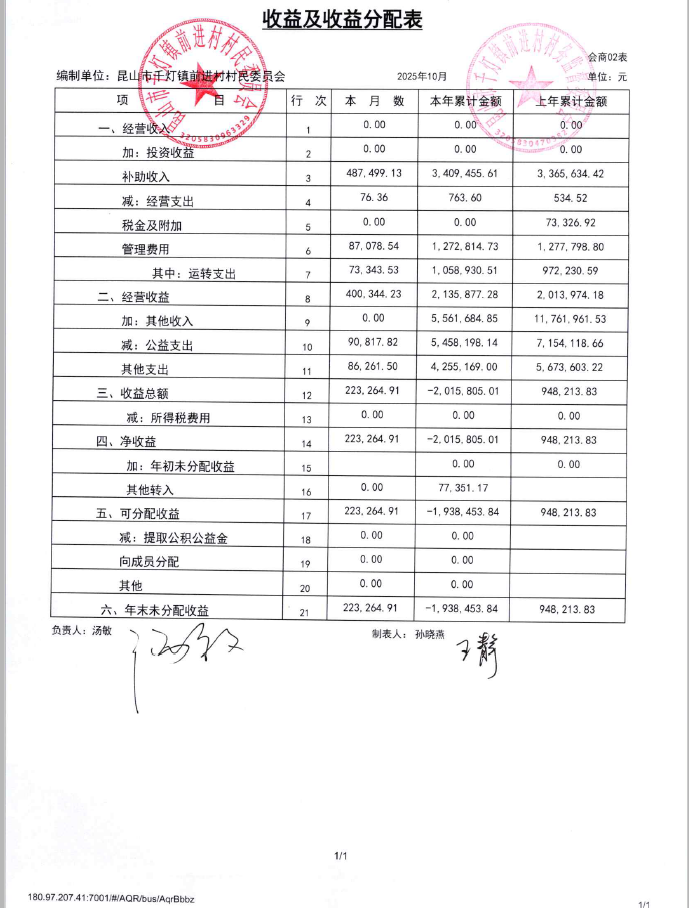 收益及收益分配表
会商02表
编制单位：昆山市千灯镇前进村村民委员会 2025年10月 单位：元
项 目 行 次 本 月 数 本年累计金额 上年累计金额
一、经营收入 1 0.00 0.00 0.00
加：投资收益 2 0.00 0.00 0.00
补助收入 3 487,499.13 3,409,455.61 3,365,634.42
减：经营支出 4 76.36 763.60 534.52
税金及附加 5 0.00 0.00 73,326.92
管理费用 6 87,078.54 1,272,814.73 1,277,798.80
其中：运转支出 7 73,343.53 1,058,930.51 972,230.59
二、经营收益 8 400,344.23 2,135,877.28 2,013,974.18
加：其他收入 9 0.00 5,561,684.85 11,761,961.53
减：公益支出 10 90,817.82 5,458,198.14 7,154,118.66
其他支出 11 86,261.50 4,255,169.00 5,673,603.22
三、收益总额 12 223,264.91 -2,015,805.01 948,213.83
减：所得税费用 13 0.00 0.00 0.00
四、净收益 14 223,264.91 -2,015,805.01 948,213.83
加：年初未分配收益 15 0.00 0.00
其他转入 16 0.00 77,351.17
五、可分配收益 17 223,264.91 -1,938,453.84 948,213.83
减：提取公积公益金 18 0.00 0.00
向成员分配 19 0.00 0.00
其他 20 0.00 0.00
六、年末未分配收益 21 223,264.91 -1,938,453.84 948,213.83
负责人：汤敏 汤敏 制表人：孙晓燕 王静
昆山市千灯镇前进村村民委员会
3205830963329
1/1
180.97.207.41:7001/#/AQR/bus/AqrBbbz
1/1